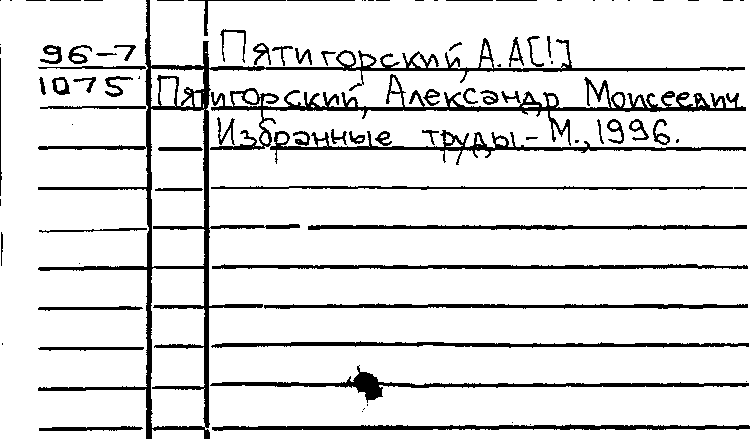 96-7 Пятигорский, А.А[!]
1075 Пятигорский, Александр Моисеевич
Избранные труды.- М., 1996.